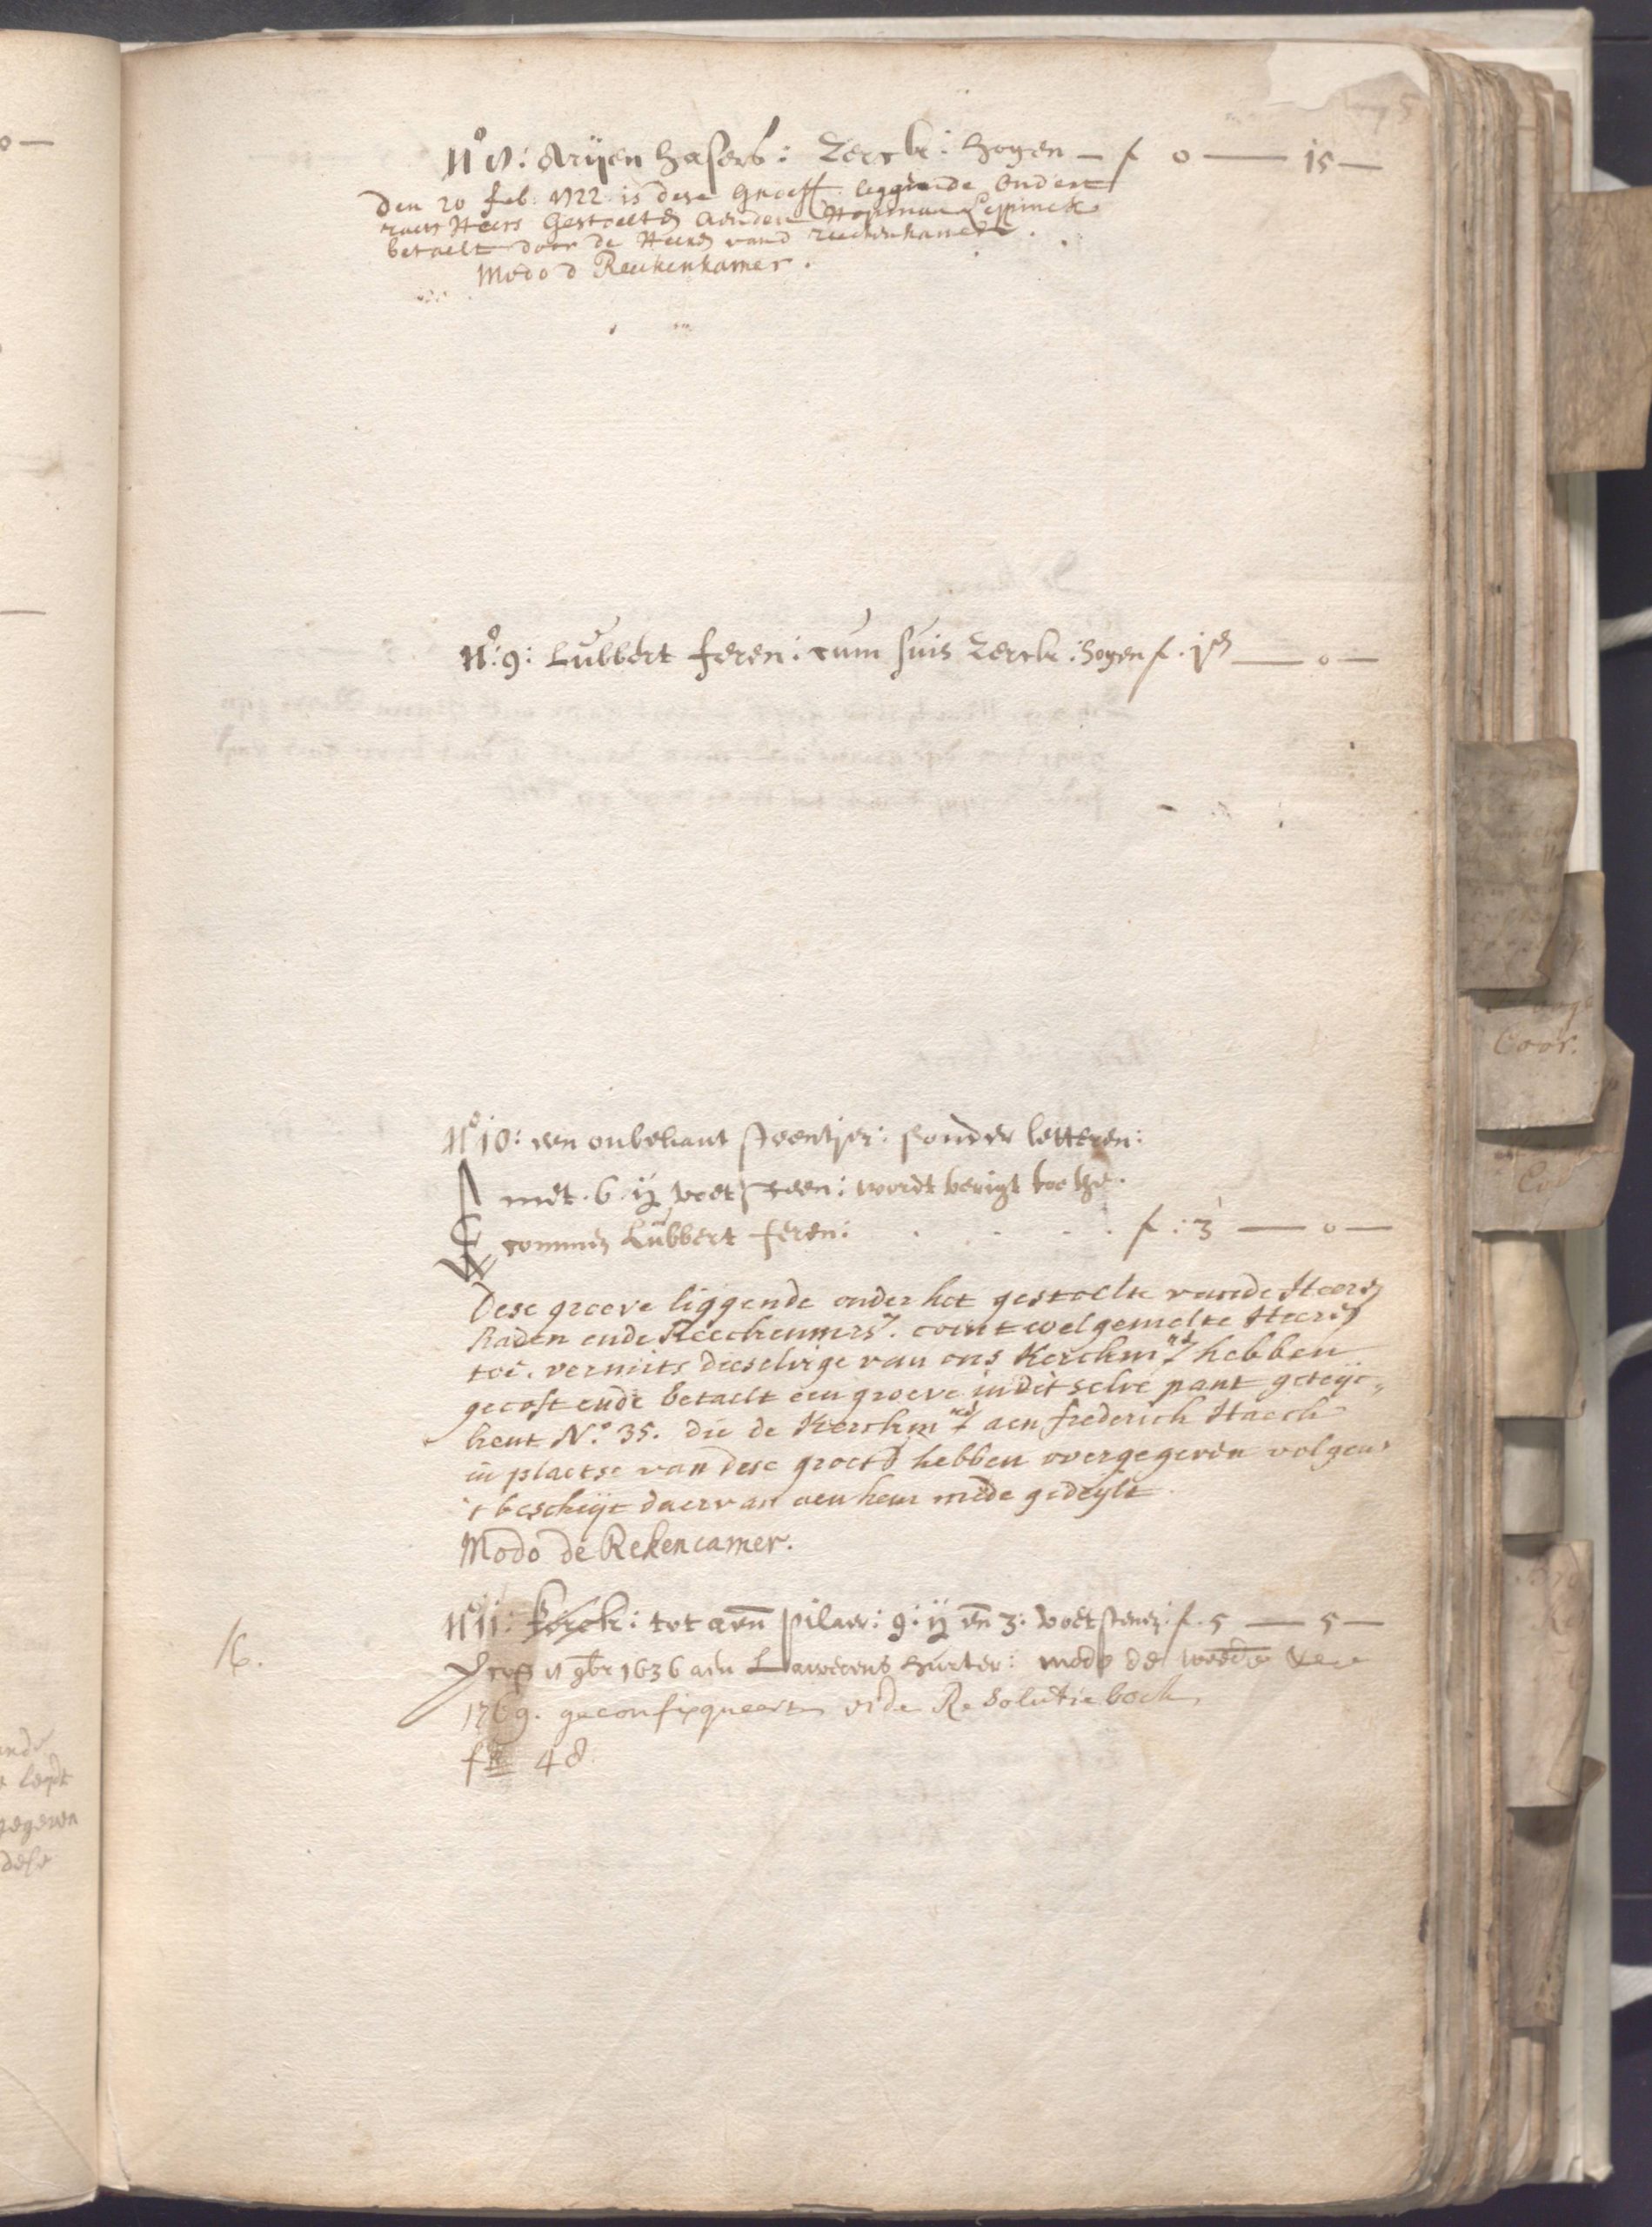 N° 8: Arijen Hasers: Zerck: hogen — f 0 — 15 —
Den 20 feb: 1722 is dese Groeff leggende onder
raets Heers Gestoelte aenden Hopman Leppinck
betaelt door de Heeren vand Reeckenkamer.
Modo d Reeckenkamer.
N°: 9: Lubbert feren: cum suis Zerck: hogen f. — 0 —
N° 10: een onbekant steentjen: sonder letteren:
met. 6. ij voet steen: wordt berigt toe te
commen Lubbert feren: . . . . f: 3 — 0 —
Dese groeve liggende onder het gestoelte vande Heeren
Raden ende Reeckenmrs. comt welgemelte Heeren
toe. vermits dieselvige van ons Kerckmrs hebben
gecoft ende betaelt een groeve in dit selve pant geteijc„
kent N.° 35. die de Kerckmrs aen frederich Haeck
in plaetse van dese groeve hebben overgegeven volgens
't bescheijt daervan aen hem mede gedeylt.
Modo de Rekencamer.
N° 11: Kerck: tot aen pilaer: 9: ij en 3: voetstenen: f. 5 — 5 —
16.
8 9br 1636 aen Lawerens Hurter: modo de weede
1769. geconfisqueert vide Resolutie boek
f° 48
Coor.